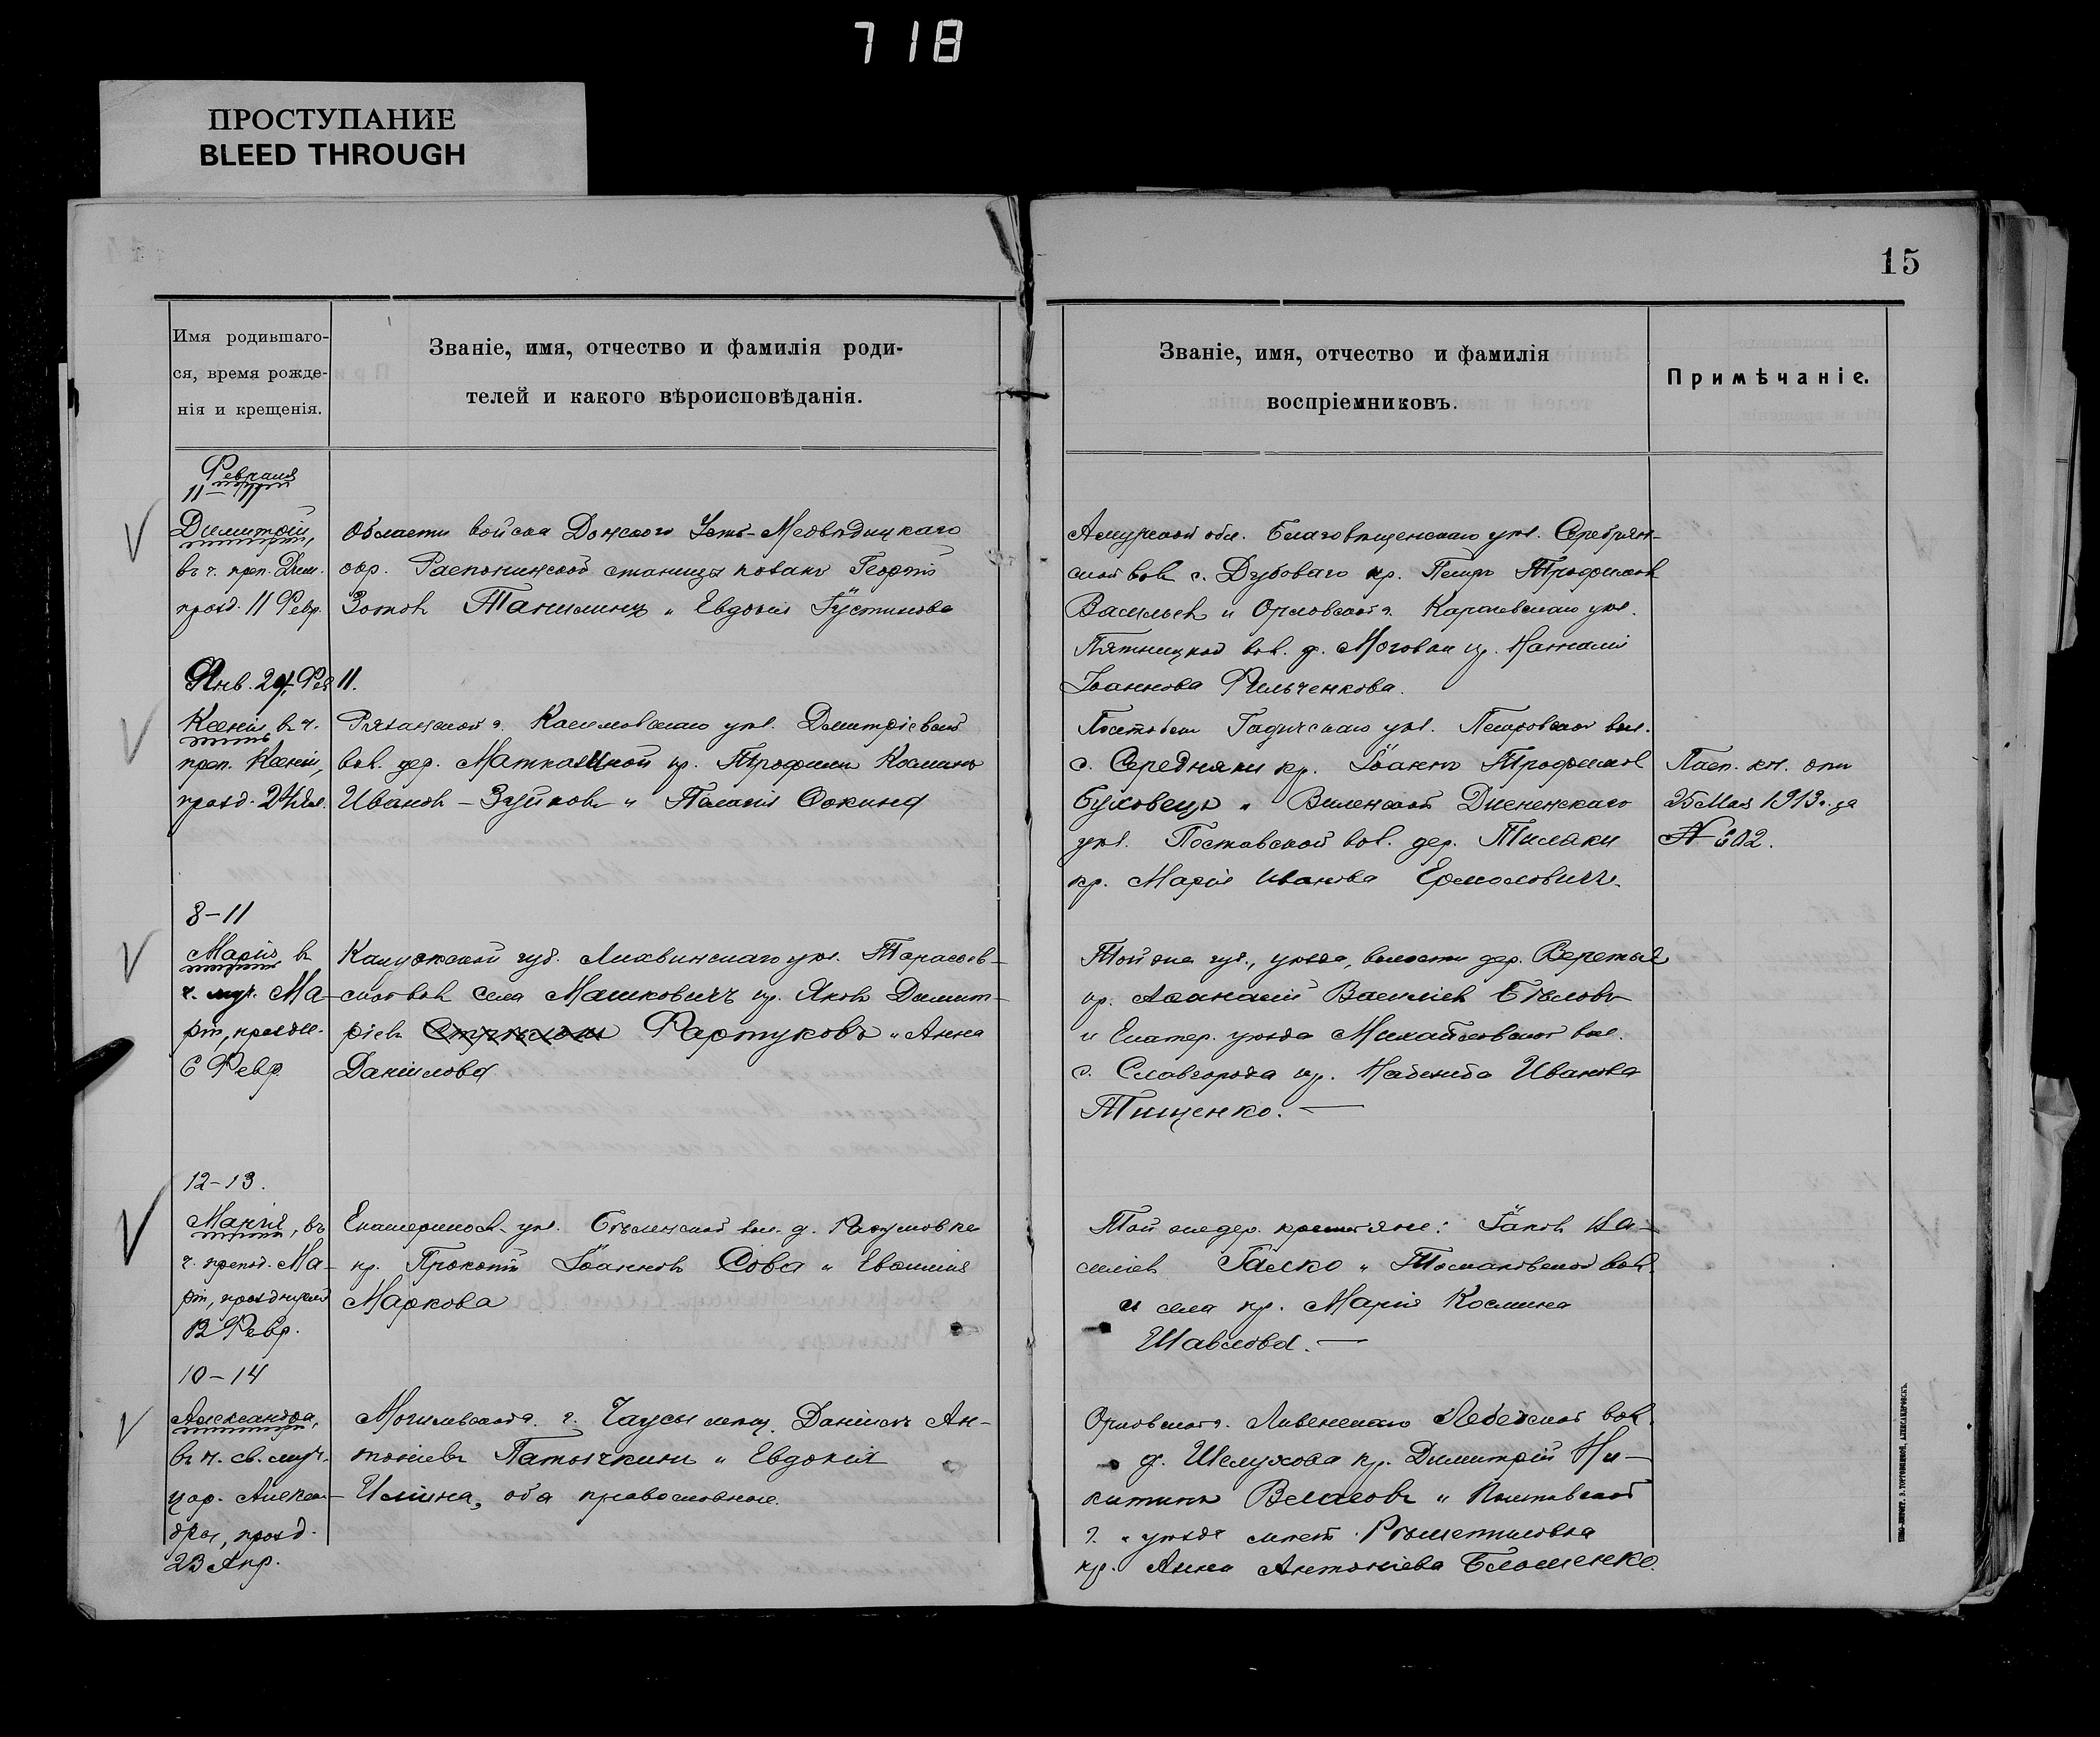 718
ПРОСТУПАНИЕ
BLEED THROUGH
15
Имя родившаго-
ся, время рожде-
нія и крещенія.
Званіе, имя, отчество и фамилія роди-
телей и какого вѣроисповѣданія.
Званіе, имя, отчество и фамилія
воспріемниковъ.
Примѣчаніе.
Февраля
11 – 11
Димитрій,
въ ч. преп. Дим.
празд. 11 Февр.
Области войска Донского Усть-Медвѣдицкаго
окр. станицы козакъ Георгій
Зотовъ Танилинъ и Евдокія Іустинова
Амурской обл. Благовѣщенскаго уѣз. Серебрян-
ской вол. с. Дубоваго кр. Петръ Трофимовъ
Васильев и Орловской г. Карачевскаго уѣз.
Пятницкой вол. д. кр. Наталія
Іоаннова Фильченкова.
Янв. 24, Фев 11.
Ксенія, въ ч.
преп. Ксеніи,
празд. 24 Янв.
Рязанской г. Касимовскаго уѣз. Димитріевской
вол. дер. кр. Трофимъ Косминъ
Ивановъ – Зуйковъ и Пелагія Фокина
Полтавской Гадячскаго уѣз. Петровской вол.
с. Середняки кр. Іоаннъ Трофимов
Буховецъ и Виленской Дисненскаго
уѣз. Поставской вол. дер. Тиляки
кр. Марія Иванова Ермоловичъ.
Пасп. кн. отъ
25 Мая 1913 г. за
№ 602.
8 – 11
Марія, въ
ч. муч. Ма-
ріи, празд.
6 Февр.
Калужской губ. Лихвинскаго уѣз. Тарасовь-
ской вол. села Машковичъ кр. Яковъ Димит-
ріевъ Фартуковъ и Анна
Даніилова
Той же губ., уѣзда, волости дер. Веретье
кр. Аѳанасій Василіев Бѣловъ
и Екатер. уѣзда Михайловской вол.
с. Славгорода кр. Надежда Иванова
Тищенко. —
12 – 13.
Марія, въ
ч. препод. Ма-
ріи, празднуемой
12 Февр.
Екатеринослав. уѣз. Бѣленской вол. д. Разумовки
кр. Прокопій Іоанновъ Сова и Евѳимія
Маркова
Той же дер. крестьяне: Іаковъ Ва-
силіев Галко и Томаковской вол.
и села кр. Марія Космина
Шавлова. —
10 – 14
Александра,
въ ч. св. муч.
цар. Алексан-
дры, празд.
23 Апр.
Могилевской г. г. Чаусы мѣщ. Даніилъ Ан-
тоніевъ Патычкинъ и Евдокія
Ильина, оба православные.
Орловской г. Ливенскаго вол.
д. Шелухова кр. Димитрій Ни-
китинъ Власовъ и Полтавской
г. и уѣзда мѣст. Рѣшетиловка
кр. Анна Антоніева Блошенко.